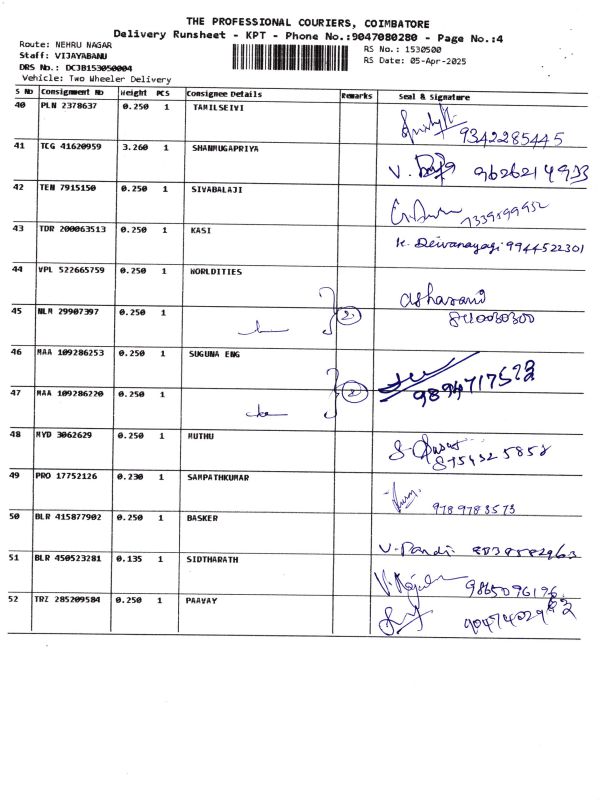 THE PROFESSIONAL COURIERS, COIMBATORE
Delivery Runsheet - KPT - Phone No.:9047080280 - Page No.:4
Route: NEHRU NAGAR
Staff: VIJAYABANU
DRS No.: DCJB153050004
Vehicle: Two Wheeler Delivery
RS No.: 1530500
RS Date: 05-Apr-2025
S No Consignment No Weight PCS Consignee Details Remarks Seal & Signature
40 PLN 2378637 0.250 1 TAMILSEIVI 9342285445
41 TCG 41620959 3.260 1 SHANMUGAPRIYA V. 9626214933
42 TEN 7915150 0.250 1 SIVABALAJI
43 TDR 200063513 0.250 1 KASI K. Deivanayagi 9944522301
44 VPL 522665759 0.250 1 WORLDITIES
45 NLM 29907397 0.250 1 2
46 MAA 109286253 0.250 1 SUGUNA ENG
47 MAA 109286220 0.250 1 2
48 MYD 3062629 0.250 1 MUTHU
49 PRO 17752126 0.230 1 SAMPATHKUMAR 9789783573
50 BLR 415877902 0.250 1 BASKER V. Pandi
51 BLR 450523281 0.135 1 SIDTHARATH 9865096196
52 TRZ 285209584 0.250 1 PAAVAY